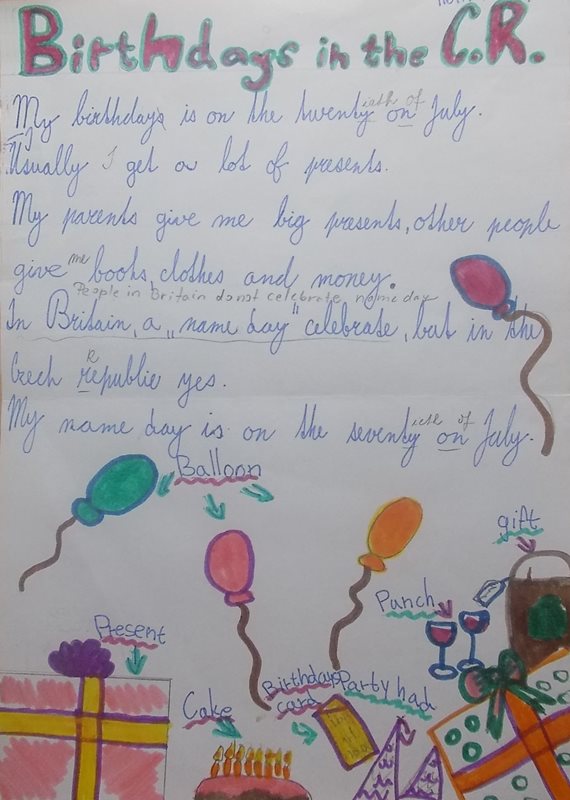 Birthdays in the C.R.
My birthdays is on the twenty ieth of on July.
Usually I get a lot of presents.
My parents give me big presents, other people
give me books, clothes and money.
People in Britain do not celebrate name day
In Britain, a „name day" celebrate, but in the
Czech republic R yes.
My name day is on the seventy ieth of on July.
Balloon
gift
Punch
Present
Birthdays
card
Party had
Cake